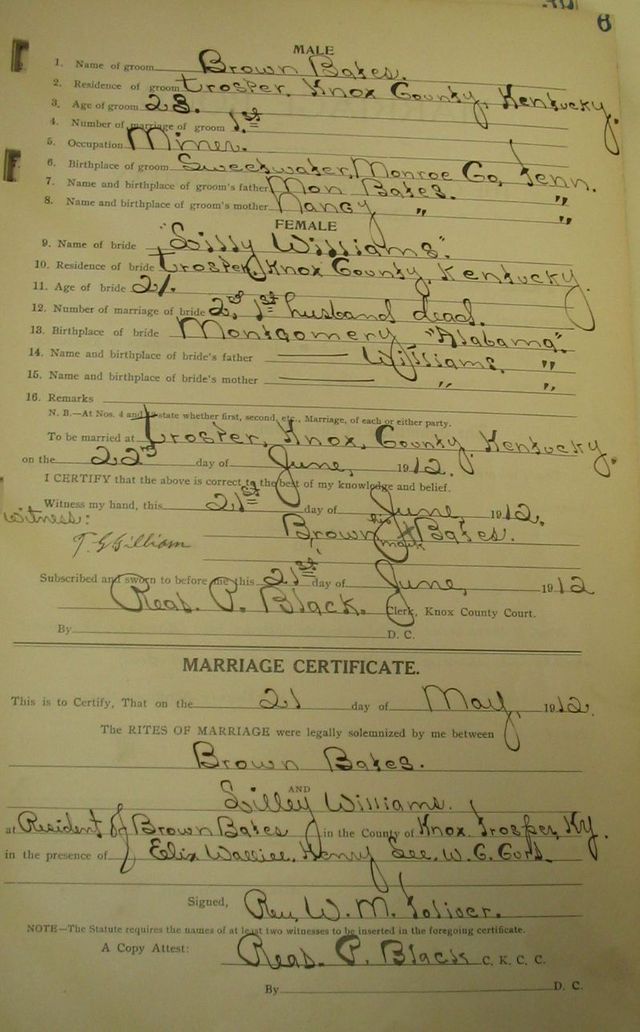 6
MALE
1. Name of groom Brown Bates.
2. Residence of groom Trosper, Knox County, Kentucky.
3. Age of groom 23.
4. Number of marriage of groom 1st
5. Occupation Miner.
6. Birthplace of groom Sweetwater, Monroe Co, Tenn.
7. Name and birthplace of groom's father Mon Bates. "
8. Name and birthplace of groom's mother Nancy " "
FEMALE
9. Name of bride "Lilly Williams".
10. Residence of bride Trosper, Knox County, Kentucky.
11. Age of bride 21.
12. Number of marriage of bride 2nd, 1st husband dead.
13. Birthplace of bride Montgomery "Alabama".
14. Name and birthplace of bride's father Williams, "
15. Name and birthplace of bride's mother " "
16. Remarks
N. B.—At Nos. 4 and state whether first, second, etc., Marriage, of each or either party.
To be married at Trosper, Knox, County, Kentucky.
on the 22nd day of June, 1912.
I CERTIFY that the above is correct to the best of my knowledge and belief.
Witness my hand, this 21st day of June, 1912.
Witness: Brown his x mark Bates.
T. G. Gilliam
Subscribed and sworn to before me this 21st day of June, 1912
Reas. P. Black. Clerk, Knox County Court.
By D. C.
MARRIAGE CERTIFICATE.
This is to Certify, That on the 21 day of May, 1912.
The RITES OF MARRIAGE were legally solemnized by me between
Brown Bates.
AND
Lilley Williams.
at Resident of Brown Bates in the County of Knox, Trosper, Ky.
in the presence of Henry Lee, W. G.
Signed, Rev, W. M. Toliver.
NOTE—The Statute requires the names of at least two witnesses to be inserted in the foregoing certificate.
A Copy Attest: Reas. P. Black C. K. C. C.
By D. C.